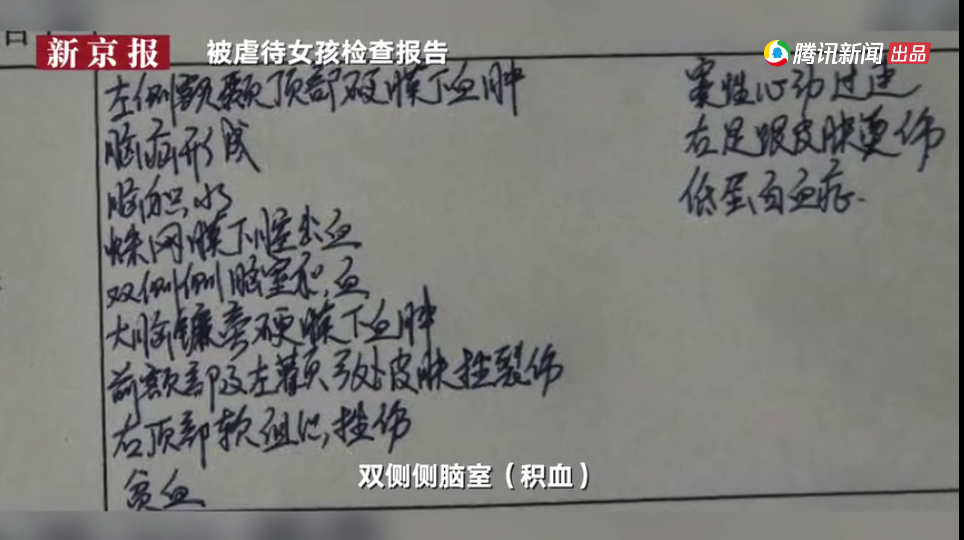 新京报
被虐待女孩检查报告
腾讯新闻 出品
左侧额颞顶部硬膜下血肿
脑疝形成
脑积水
蛛网膜下腔出血
双侧侧脑室积血
大脑镰旁硬膜下血肿
前额部及左颞顶部皮肤挫裂伤
右顶部软组织挫伤
贫血
窦性心动过速
右足跟皮肤烫伤
低蛋白血症.
双侧侧脑室（积血）